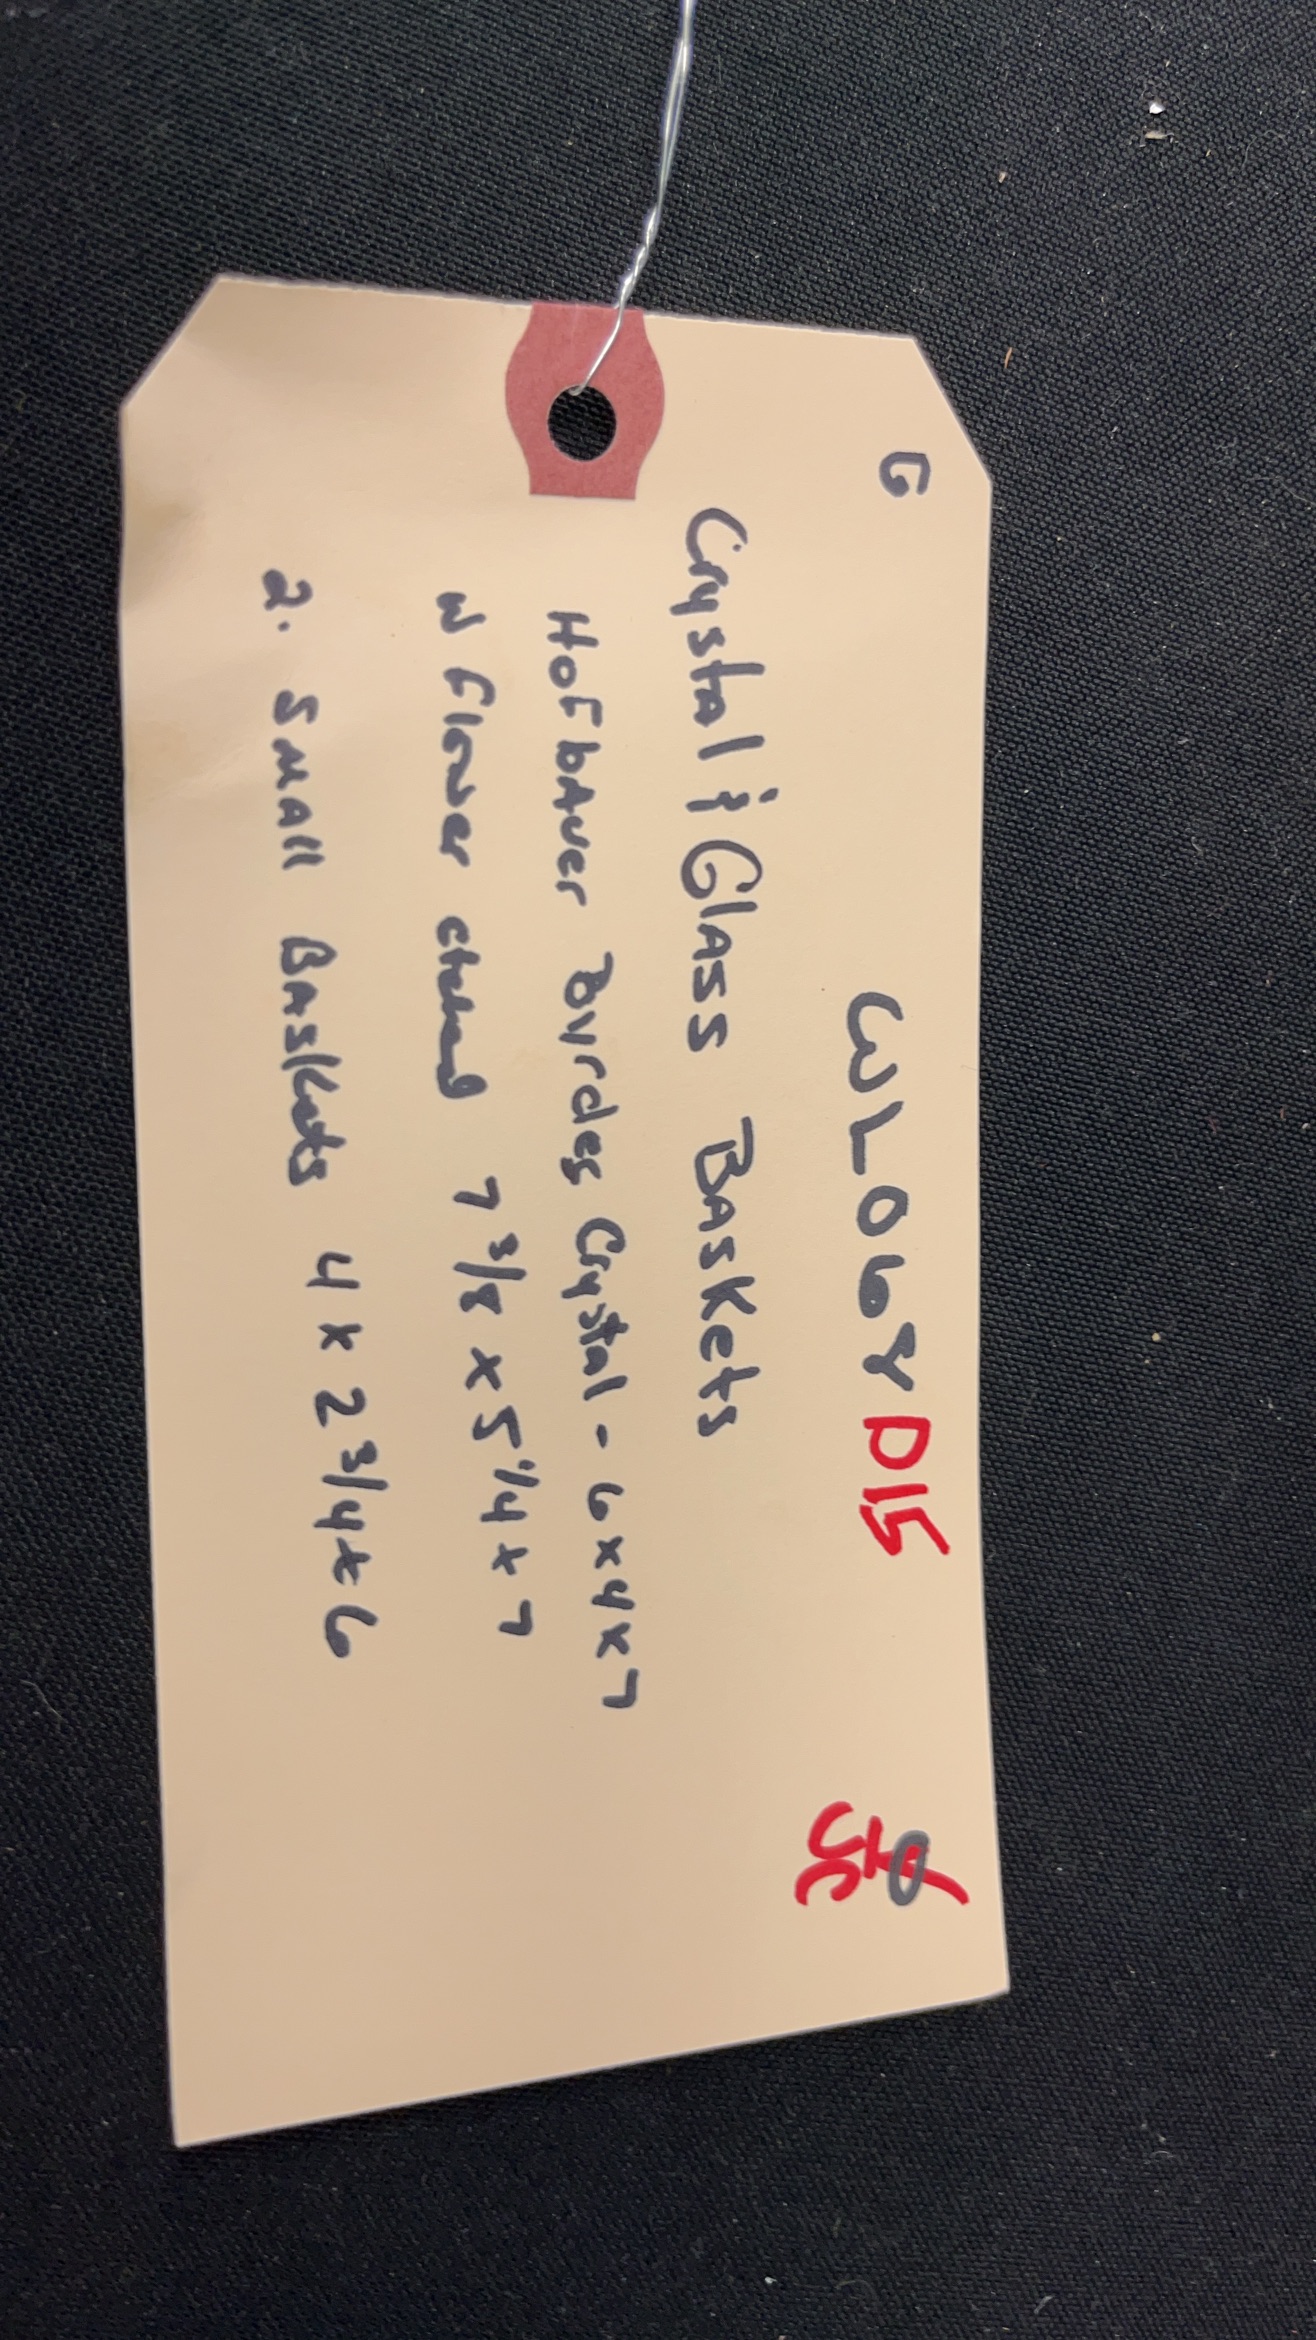 G
WL068 D15
Crystal & Glass Baskets
HoFbAuer Byrdes Crystal - 6x4x7
W Flower etched 7 3/8 x 5 1/4 x 7
2. Small Baskets 4 x 2 3/4 x 6